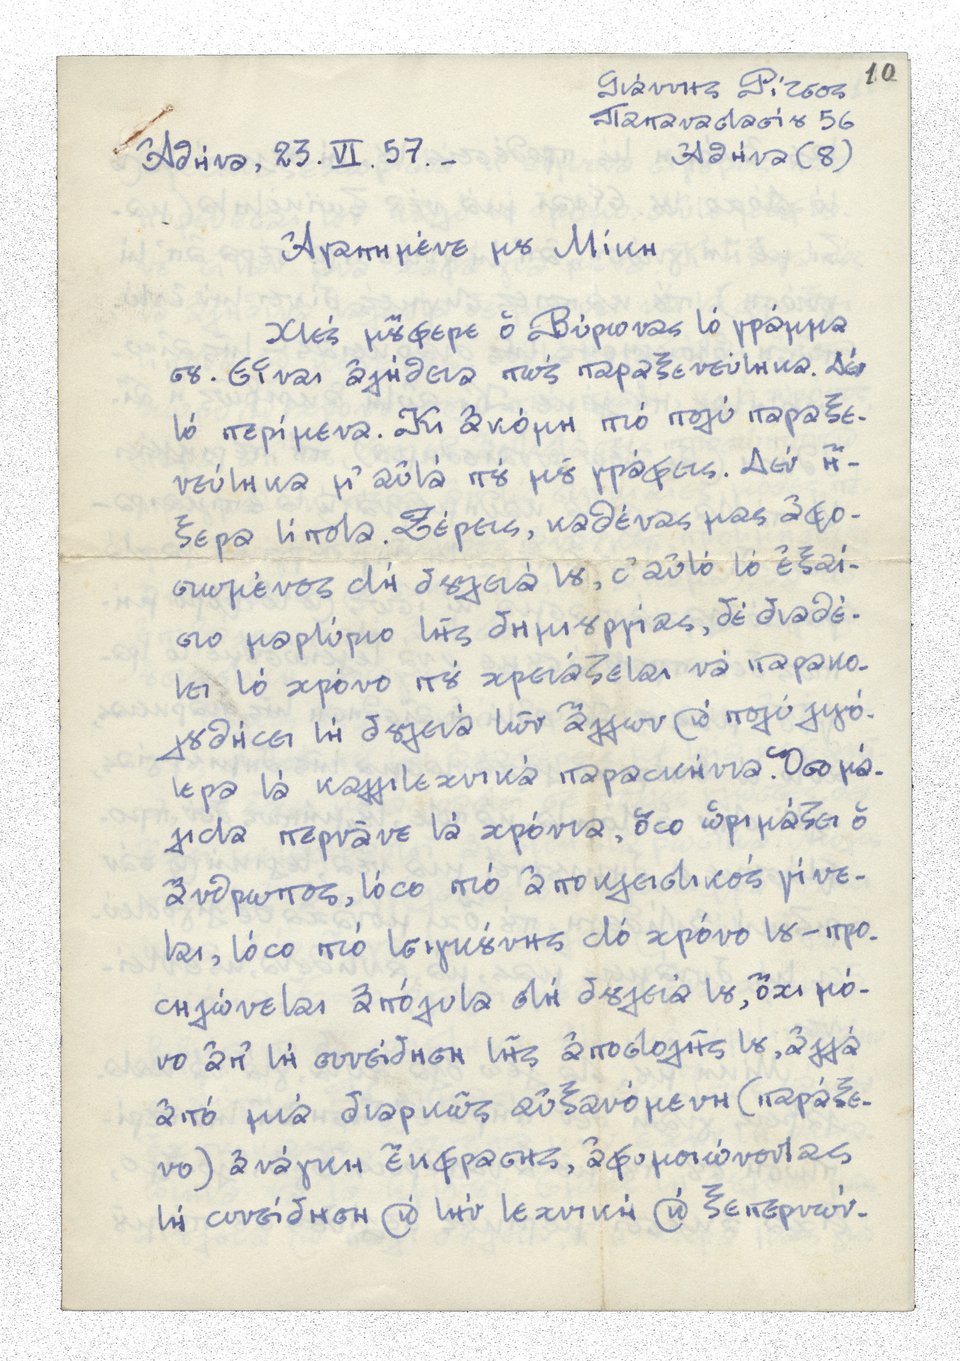 10
Γιάννης Ρίτσος
Παπαναστασίου 56
Ἀθήνα, 23. VI. 57.- Ἀθήνα (8)
Ἀγαπημένε μου Μίκη
Χτές μοὔφερε ὁ Βύρωνας τό γράμμα
σου. Εἶναι ἀλήθεια πώς παραξενεύτηκα. Δέν
τό περίμενα. Κι ἀκόμη πιό πολύ παραξε-
νεύτηκα μ' αὐτά πού μοῦ γράφεις. Δέν ἤ-
ξερα τίποτα. Ξέρεις, καθένας μας ἀφο-
σιωμένος στή δουλειά του, σ' αὐτό τό ἐξαί-
σιο μαρτύριο τῆς δημιουργίας, δέ διαθέ-
τει τό χρόνο πού χρειάζεται νά παρακο-
λουθήσει τή δουλειά τῶν ἄλλων καί πολύ λιγό-
τερα τά καλλιτεχνικά παρασκήνια. Ὅσο μά-
λιστα περνᾶνε τά χρόνια, ὅσο ὡριμάζει ὁ
ἄνθρωπος, τόσο πιό ἀποκλειστικός γίνε-
ται, τόσο πιό τσιγκούνης στό χρόνο του – προ-
σηλώνεται ἀπόλυτα στή δουλειά του, ὄχι μό-
νο ἀπ' τή συνείδηση τῆς ἀποστολῆς του, ἀλλά
ἀπό μιά διαρκῶς αὐξανόμενη (παράξε-
νο) ἀνάγκη ἔκφρασης, ἀφομοιώνοντας
τή συνείδηση καί τήν τεχνική καί ξεπερνών-